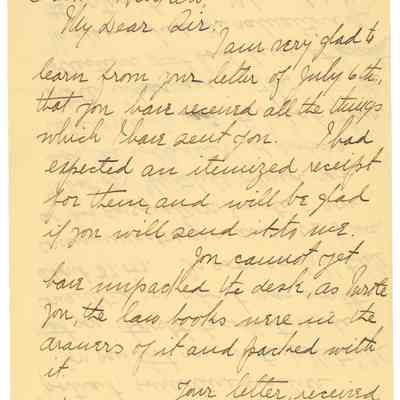 My Dear Sir.
I am very glad to
learn from your letter of July 6th,
that you have received all the things
which I have sent you. I had
expected an itemized receipt
for them, and will be glad
if you will send it to me.
You cannot yet
have unpacked the desk, as I wrote
you, the law books were in the
drawers of it and packed with
it.
Your letter, received